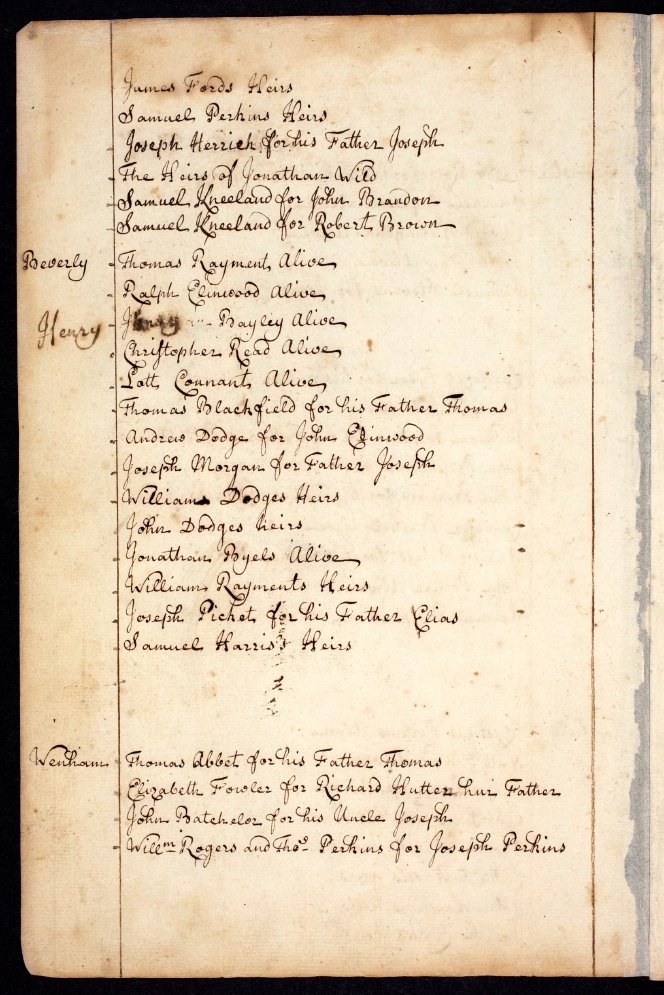 James Fords Heirs
Samuel Perkins Heirs
Joseph Herrick for his Father Joseph
The Heirs of Jonathan Wild
Samuel Kneeland for John Brandon
Samuel Kneeland for Robert Brown
Beverly Thomas Rayment Alive
Ralph Elinwood Alive
Henry Bayley Alive
Christopher Read Alive
Lott Connant Alive
Thomas Blackfield for his Father Thomas
Andrew Dodge for John Elinwood
Joseph Morgan for Father Joseph
William Dodges Heirs
John Dodges heirs
Jonathan Byels Alive
William Rayments Heirs
Joseph Picket for his Father Elias
Samuel Harris's Heirs
Wenham Thomas Abbet for his Father Thomas
Elizabeth Fowler for Richard Hutter hur Father
John Batchelor for his Uncle Joseph
Willm Rogers and Thos Perkins for Joseph Perkins